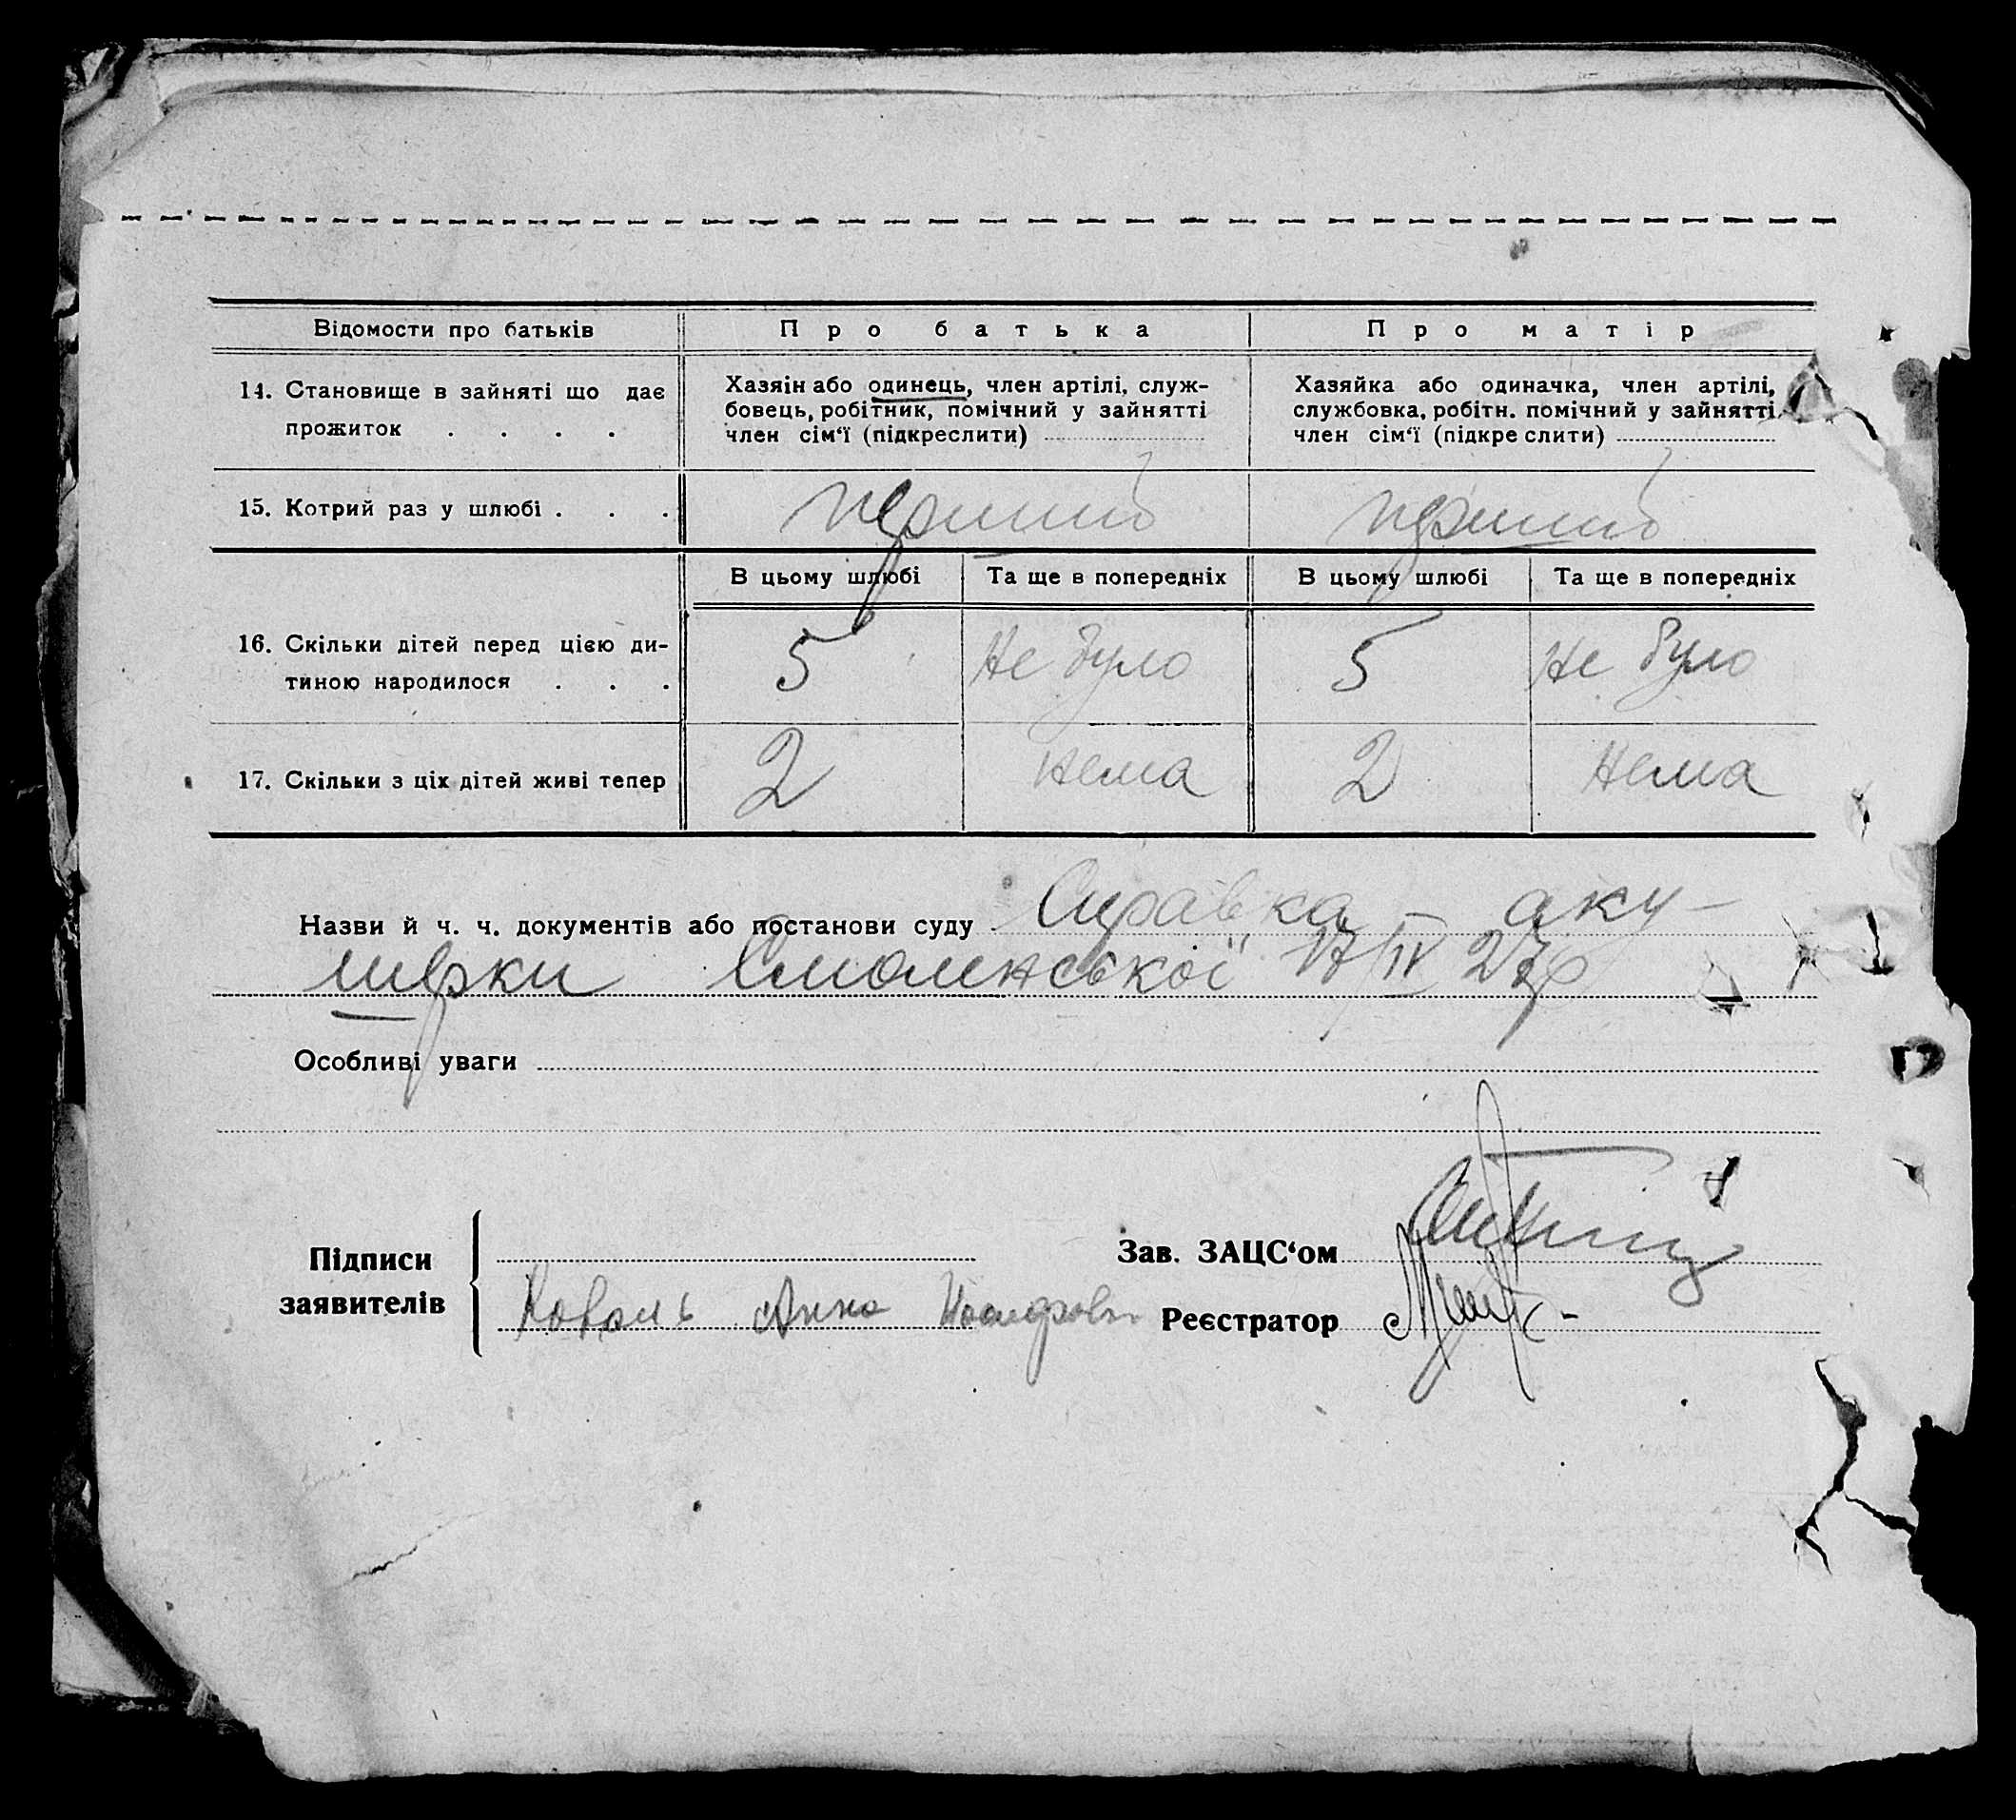 Відомости про батьків Про батька Про матір
14. Становище в зайняті що дає прожиток . . . .
Хазяін або одинець, член артілі, служ-
бовець, робітник, помічний у зайнятті
член сім‘ї (підкреслити)
Хазяйка або одиначка, член артілі,
службовка, робітн. помічний у зайнятті
член сім‘ї (підкре слити)
15. Котрий раз у шлюбі . . . перший перший
В цьому шлюбі Та ще в попередніх В цьому шлюбі Та ще в попередніх
16. Скільки дітей перед цією ди-
тиною народилося . . . 5 Не було 5 Не було
17. Скільки з ціх дітей живі тепер 2 Нема 2 Нема
Назви й ч. ч. документів або постанови суду Справка аку-
шерки Смоленської 17/IV 27р
Особливі уваги
Підписи
заявителів
Коваль Анна
Зав. ЗАЦС‘ом
Реєстратор